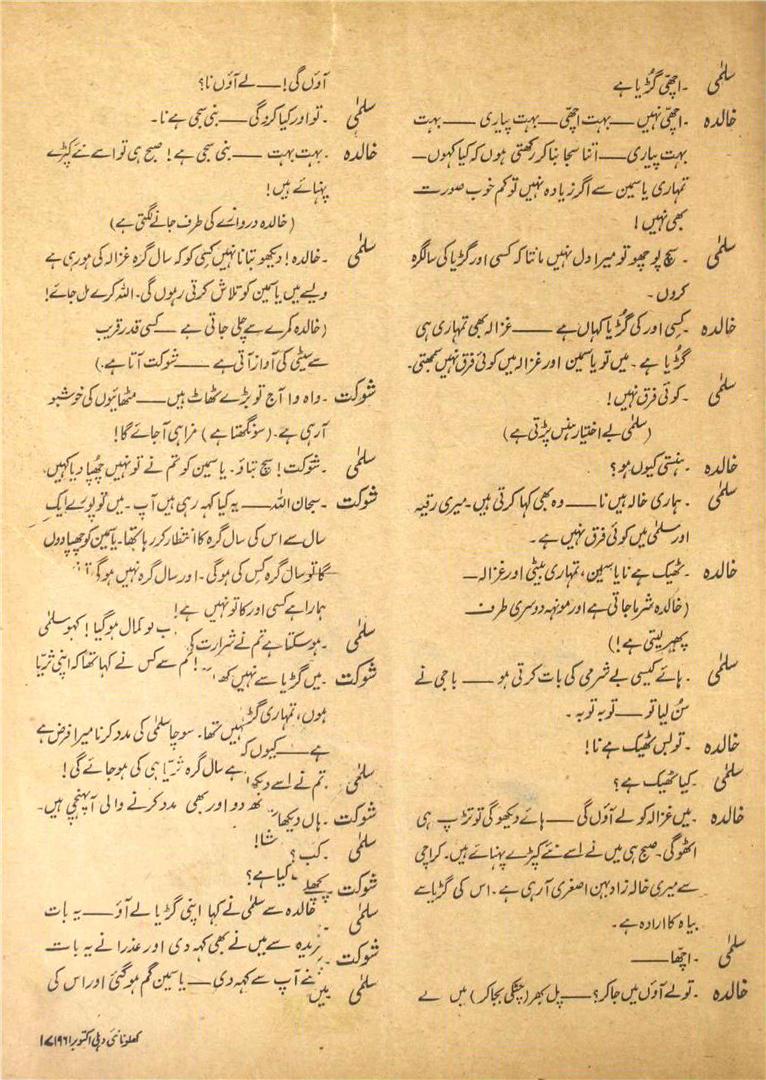 سلمٰی ۔اچھّی گُڑیا ہے
خالدہ ۔اچھّی نہیں —— بہت اچھّی —— بہت پیاری —— بہت
بہت پیاری —— اتنا سجا بنا کر رکھتی ہوں کہ کیا کہوں——
تمہاری یاسمین سے اگر زیادہ نہیں تو کم خوب صورت
بھی نہیں!
سلمٰی ۔ سچ پوچھو تو میرا دل نہیں مانتا کہ کسی اور گڑیا کی سالگرہ
کروں۔
خالدہ ۔کسی اور کی گُڑیا کہاں ہے —— غزالہ بھی تمہاری ہی
گڑیا ہے۔ میں تو یاسمین اور غزالہ میں کوئی فرق نہیں سمجھتی۔
سلمٰی ۔ کوئی فرق نہیں!
(سلمٰی بے اختیار ہنس پڑتی ہے)
خالدہ ۔ ہنستی کیوں ہو؟
سلمٰی ۔ ہماری خالہ ہیں نا —— وہ بھی کہا کرتی ہیں۔ میری رقیہ
اور سلمٰی میں کوئی فرق نہیں ہے۔
خالدہ ۔ ٹھیک ہے نا یاسمین، تمہاری بیٹی اور غزالہ——
(خالدہ شرما جاتی ہے اور مونہہ دوسری طرف
پھیر لیتی ہے!)
سلمٰی ۔ ہائے کیسی بے شرمی کی بات کرتی ہو —— باجی نے
سُن لیا تو —— توبہ توبہ۔
خالدہ ۔ تو بس ٹھیک ہے نا!
سلمٰی ۔ کیا ٹھیک ہے؟
خالدہ ۔ میں غزالہ کو لے آؤں گی —— ہائے دیکھو گی تو تڑپ ہی
اٹھو گی۔ صبح ہی میں نے اسے نئے کپڑے پہنائے ہیں۔ کراچی
سے میری خالہ زاد بہن اصغری آ رہی ہے۔ اس کی گڑیا سے
بیاہ کا ارادہ ہے۔
سلمٰی ۔ اچھّا ——
خالدہ ۔ تو لے آؤں میں جا کر؟ —— پل بھر (چٹکی بجا کر) میں لے
آؤں گی! —— لے آؤں نا؟
سلمٰی ۔ تو اور کیا کرو گی —— بنی سجی ہے نا۔
خالدہ ۔ بہت بہت —— بنی سجی ہے! صبح ہی تو اسے نئے کپڑے
پہنائے ہیں!
(خالدہ دروازے کی طرف جانے لگتی ہے)
سلمٰی ۔ خالدہ! دیکھو بتانا نہیں کسی کو کہ سال گرہ غزالہ کی ہو رہی ہے
ویسے میں یاسمین کو تلاش کرتی رہوں گی۔ اللہ کرے مل جائے!
(خالدہ کمرے سے چلی جاتی ہے —— کسی قدر قریب
سے سیٹی کی آواز آتی ہے —— شوکت آتا ہے۔)
شوکت ۔ واہ وا آج تو بڑے ٹھاٹ ہیں —— مٹھائیوں کی خوشبو
آ رہی ہے۔ (سونگھتا ہے) مزا ہی آ جائے گا!
سلمٰی ۔ شوکت! سچ بتاؤ۔ یاسمین کو تم نے تو نہیں چھُپا دیا کہیں۔
شوکت ۔ سبحان اللہ —— یہ کیا کہہ رہی ہیں آپ۔ میں تو پورے ایک
سال سے اس کی سال گرہ کا انتظار کر رہا تھا۔ یاسمین کو چھپا دوں
گا تو سال گرہ کس کی ہوگی۔ اور سال گرہ نہیں ہوگی
ہمارا ہے کسی اور کا تو نہیں ہے!
سلمٰی ۔ ہو سکتا ہے تم نے شرارت کی تو کمال ہو گیا! کہو سلمٰی
شوکت ۔ میں گڑیا سے نہیں کھ ! تم سے کس نے کہا تھا کہ اپنی ثریا
ہوں، تمہاری گڑ نہیں تھا۔ سوچا سلمٰی کی مدد کرنا میرا فرض ہے
ہے —— کیوں کہ
سلمٰی ۔ تم نے اسے دیکھا ہے سال گرہ ثریا ہی کی ہو جائے گی!
شوکت ۔ ہاں دیکھا دو اور بھی مدد کرنے والی آ پہنچی ہیں۔
سلمٰی ۔ کب؟ شا!
شوکت ۔ پچھلے کیا ہے؟
سلمٰی ۔ خالدہ سے سلمٰی نے کہا اپنی گڑیا لے آؤ —— یہ بات
شوکت ۔ سے میں نے بھی کہہ دی اور عذرا نے یہ بات
سلمٰی نے آپ سے کہہ دی —— یاسمین گم ہو گئی اور اس کی
کھلونا نئی دہلی اکتوبر ۱۹۶۱ ۱۷